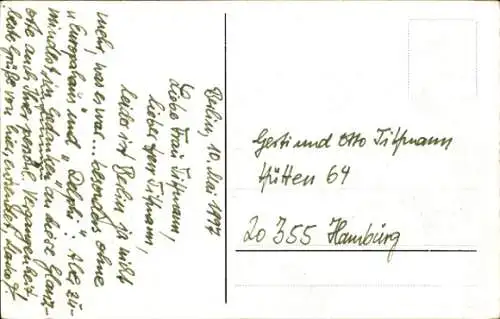 Berlin, 10. Mai 1997
Liebe Frau Tittmann,
lieber Herr Tittmann,
leider ist Berlin ja nicht
mehr, was es war... besonders ohne
"Europahaus" und "Delphi". Also zu-
mindest in Gedanken an diese Glanz-
orte auch Ihrer persönl. Vergangenheit,
beste Grüße von hier,
Gerti und Otto Tittmann
Hütten 64
20355 Hamburg